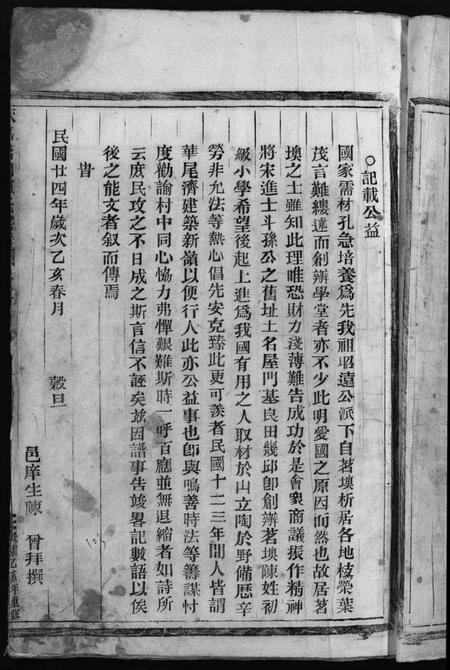 ○記載公益
國家需材孔急培養爲先我祖昭遠公派下自茗墺析居各地枝榮葉
茂言難縷述而創辦學堂者亦不少此明愛國之原因而然也故居茗
墺之士雖知此理唯恐財力淺薄難告成功於是會衆商議振作精神
將宋進士斗孫公之舊址土名屋門基良田幾邱卽創辦茗墺陳姓初
級小學希望後起上進爲我國有用之人取材於山立陶於野備歷辛
勞非允法等熱心倡先安克臻此更可羨者民國十二三年間人皆謂
華尾濟建築新嶺以便行人此亦公益事也卽與鳴善時法等籌謀忖
度勸諭村中同心恊力弗憚艱難斯時一呼百應並無退縮者如詩所
云庶民攻之不日成之斯言信不誣矣茲因譜事告竣畧記數語以俟
後之能文者叙而傳焉
旹
民國廿四年歲次乙亥春月 穀旦
邑庠生陳 晉拜撰
乙亥年重修